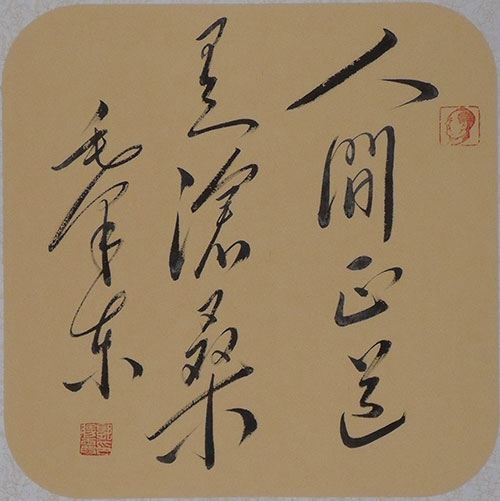 人間正道
是滄桑
毛澤东